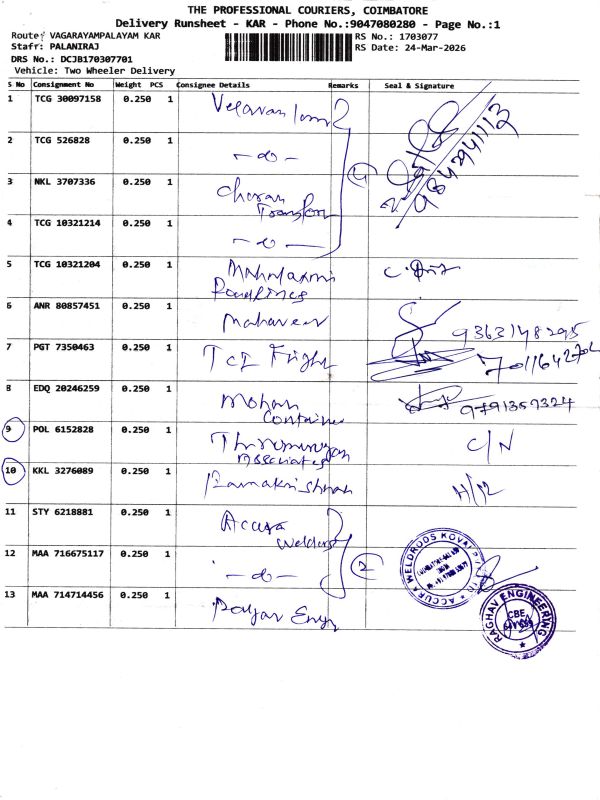 THE PROFESSIONAL COURIERS, COIMBATORE
Delivery Runsheet - KAR - Phone No.:9047080280 - Page No.:1
Route: VAGARAYAMPALAYAM KAR
RS No.: 1703077
Staff: PALANIRAJ
RS Date: 24-Mar-2026
DRS No.: DCJB170307701
Vehicle: Two Wheeler Delivery
S No Consignment No Weight PCS Consignee Details Remarks Seal & Signature
1 TCG 30097158 0.250 1 Velavan
9842941113
2 TCG 526828 0.250 1 -do-
4
3 NKL 3707336 0.250 1 Cheran
Transport
4 TCG 10321214 0.250 1 -do-
5 TCG 10321204 0.250 1 Mahalaxmi
Roadlines
6 ANR 80857451 0.250 1 Mahaveer
9363148295
7 PGT 7350463 0.250 1 TCI Fright
8 EDQ 20246259 0.250 1 Mohan
Container
9791357324
9 POL 6152828 0.250 1 Thirumurugan
Associates
C/N
10 KKL 3276089 0.250 1 Ramakrishnan
11 STY 6218881 0.250 1 Accura
Welders
2
12 MAA 716675117 0.250 1 -do-
ACCURA WELDRODS KOVAI PVT LTD
13 MAA 714714456 0.250 1 Engr
RAGHAV ENGINEERING
CBE